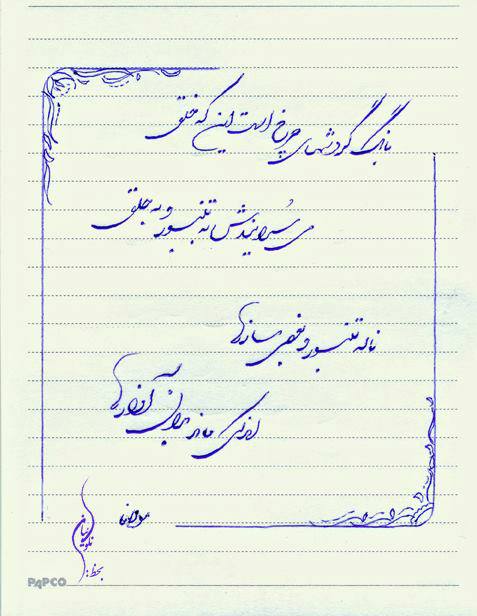 بانگ گردشهای چرخ است این که خلق
می سرایندش به تنبور و به حلق
ناله تنبور و بعضی سازها
اندکی ماند بدان آوازها
مولانا
بخط:
PAPCO